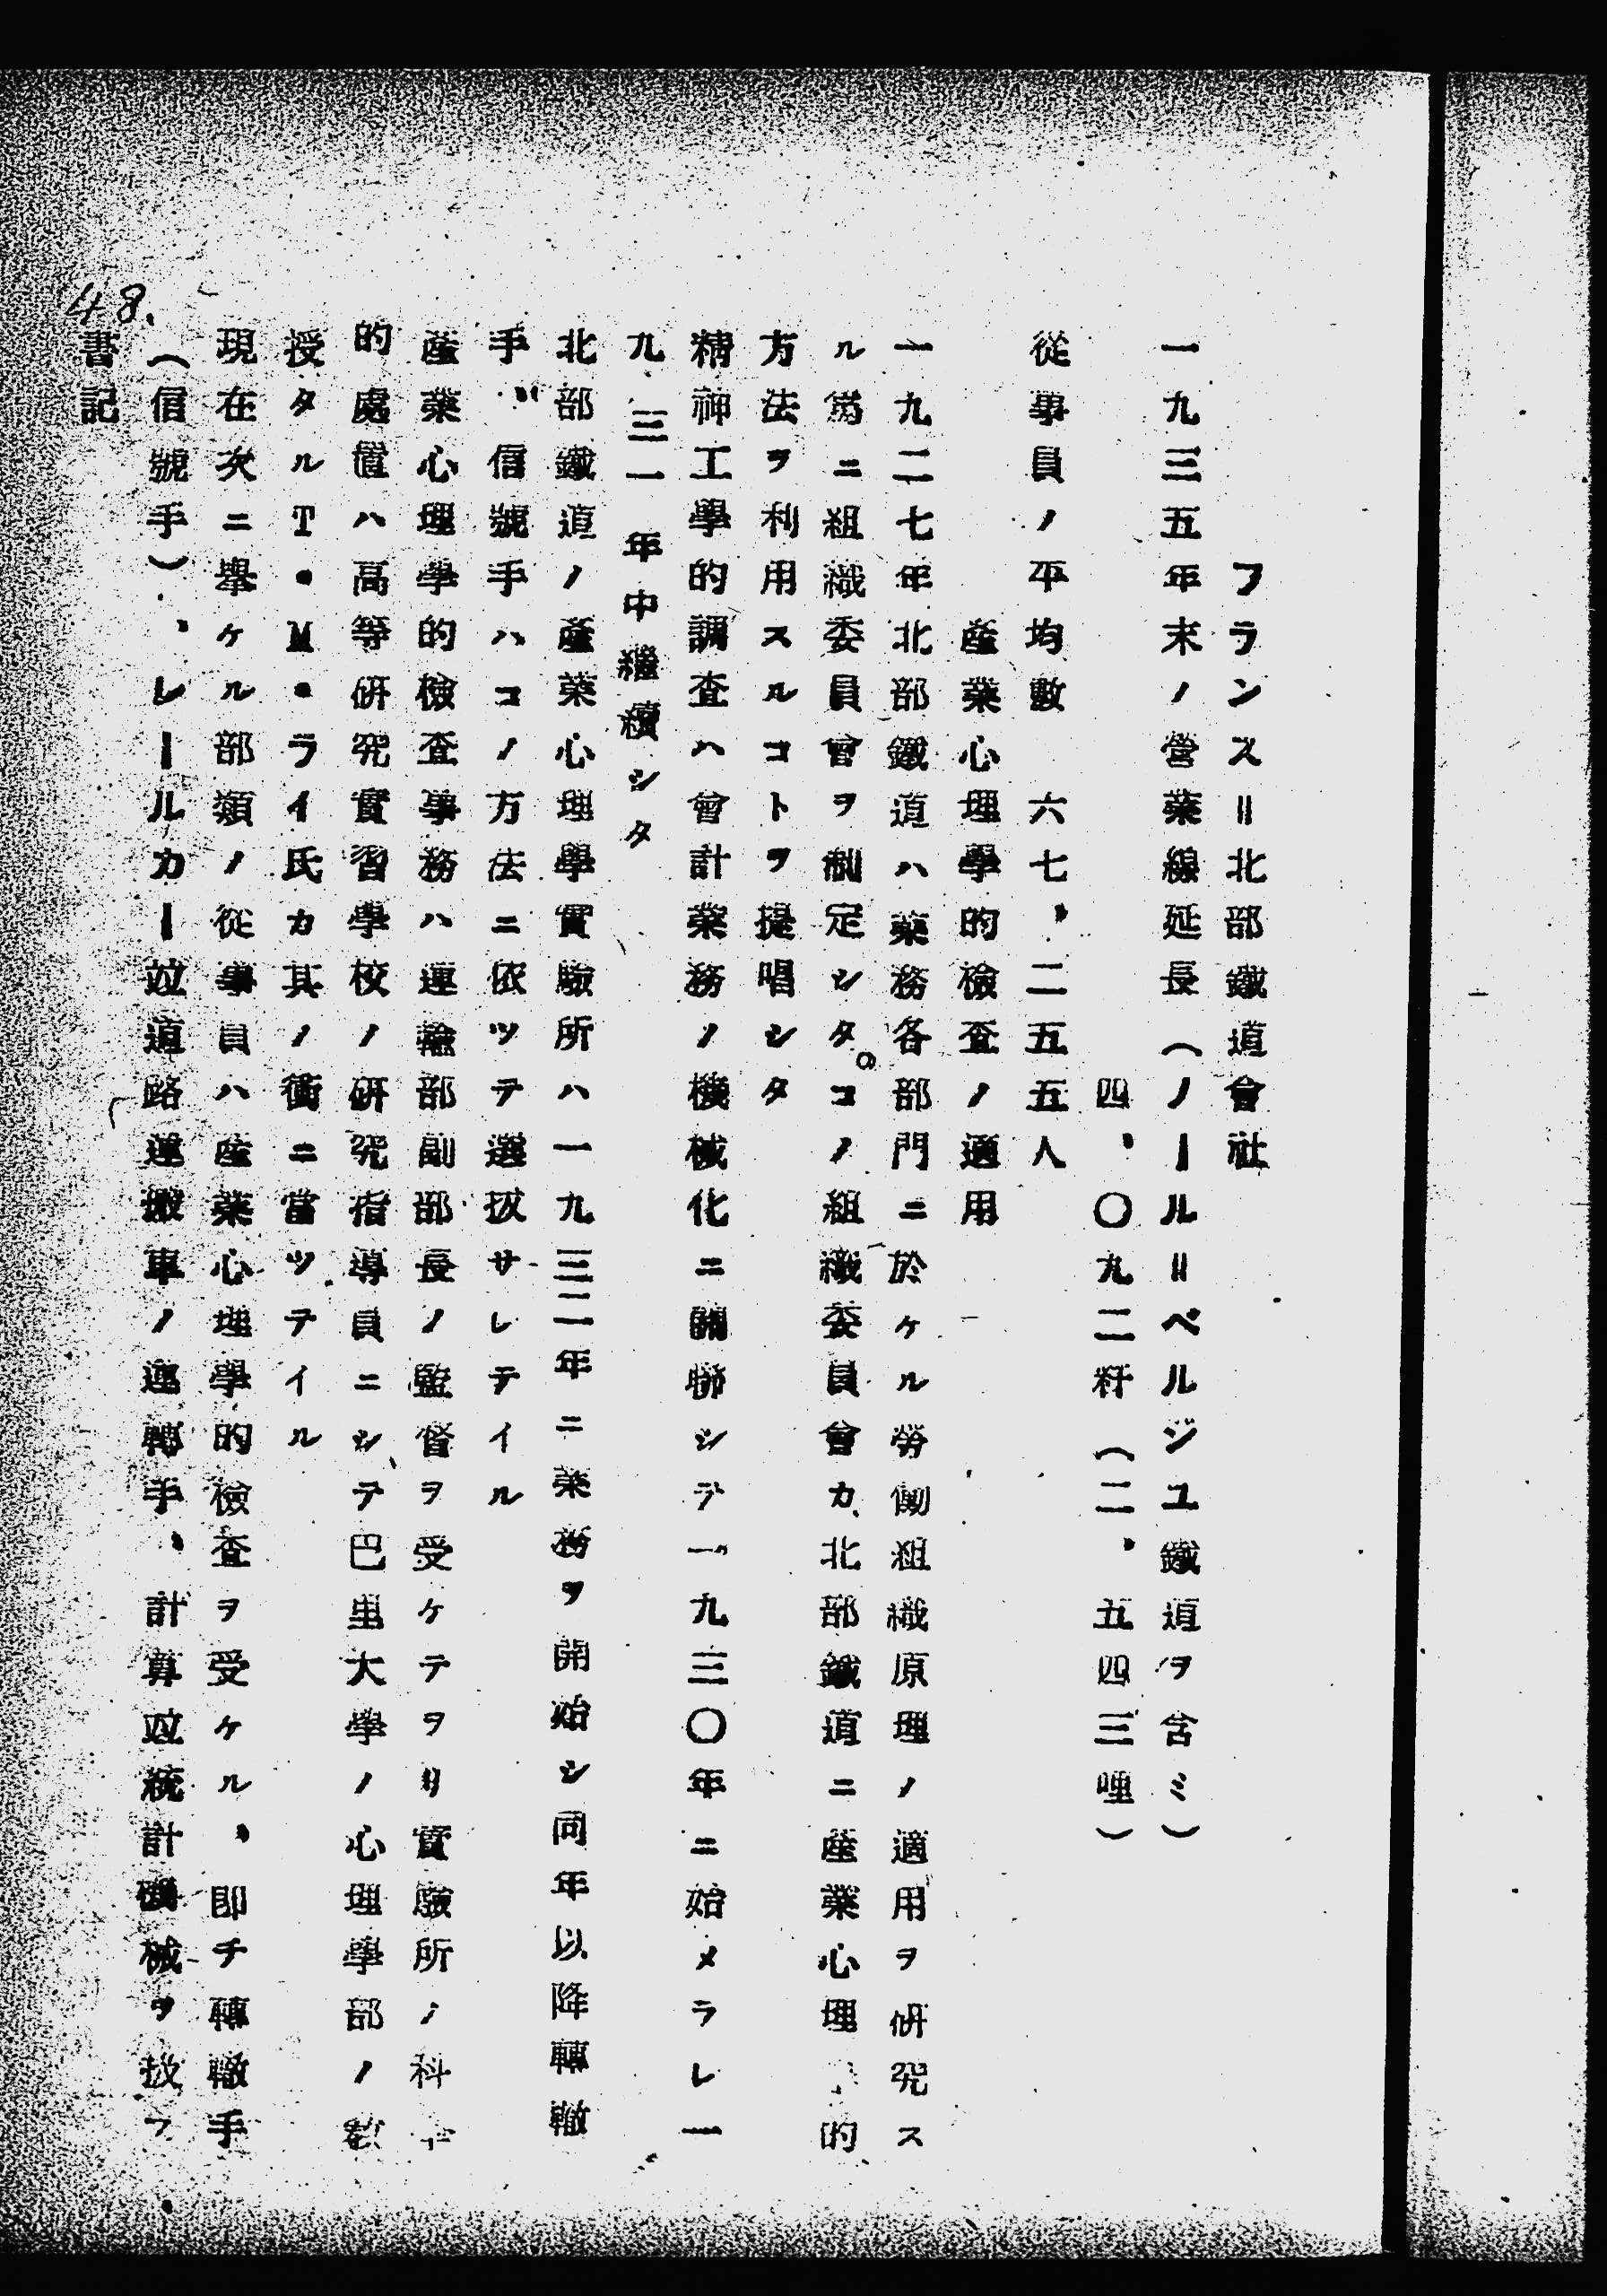 フランス＝北部鐵道會社
一九三五年末ノ營業線延長（ノール＝ベルジユ鐵道ヲ含ミ）
四、〇九二粁（二、五四三哩）
從事員ノ平均數　六七、二五五人
產業心理學的檢査ノ適用
一九二七年北部鐵道ハ業務各部門ニ於ケル勞働組織原理ノ適用ヲ研究ス
ル爲ニ組織委員會ヲ制定シタ。コノ組織委員會カ北部鐵道ニ產業心理　的
方法ヲ利用スルコトヲ提唱シタ
精神工學的調査ハ會計業務ノ機械化ニ關聯シテ一九三〇年ニ始メラレ一
九三一年中繼續シタ
北部鐵道ノ產業心理學實驗所ハ一九三二年ニ業務ヲ開始シ同年以降轉轍
手、信號手ハコノ方法ニ依ツテ選拔サレテイル
產業心理學的檢査事務ハ運輸部副部長ノ監督ヲ受ケテヲリ實驗所ノ科
的處置ハ高等硏究實習學校ノ研究指導員ニシテ巴里大學ノ心理學部ノ敎
授タルT・M・ライ氏カ其ノ衝ニ當ツテイル
現在次ニ擧ケル部類ノ從事員ハ產業心理學的檢査ヲ受ケル、卽チ轉轍手
（信號手）、レールカー竝道路運搬車ノ運轉手、計算竝統計機械ヲ扱フ
書記
48.